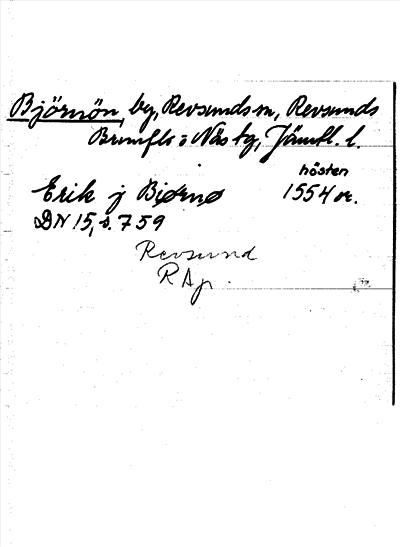 Björnön, by, Revsunds sn, Revsunds
Brunflo o Näs tg, Jämtl. l.
hösten
Erik j Biørnø 1554 or.
DN 15, s. 759
Revsund
R Ap.